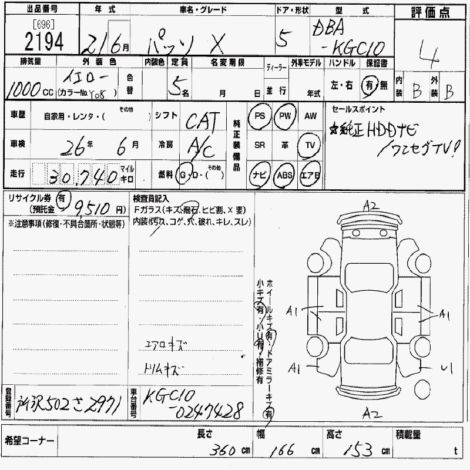 出品番号 年式 車名・グレード ドア・形状 型式 評価点
[696]
2194 21 6月 パッソ X 5 DBA-KGC10 4
排気量 外装色 内装色 定員 名変期限 ディーラー 外車モデル ハンドル 保証書 内装 外装
1000cc イエロー (カラーNo. Y08) 色替 5名 月 日 並行 年式 左・右 有・無 B B
車歴 自家用・レンタ・(その他) シフト CAT 純正装備品 PS PW AW セールスポイント
車検 26年 6月 冷房 A/C SR 革 TV ☆純正HDDナビ
走行 30,740 マイル キロ 燃料 G・D・(その他) ナビ ABS エアB /ワンセグTV!
リサイクル券 有 (預託金 9,510円)
※注意事項(修復・不具合箇所・状態等)
検査員記入
Fガラス(キズ・飛石・ヒビ割、X要)
内装(汚れ、コゲ、穴、破れ、キレ、スレ)
エアロキズ
トリムキズ
ホイールキズ有・ドアミラーキズ有
小キズ有・小U有・補修有
A2
A1 A1
A1 U1
A2
登録番号 所沢502さ2971 車台番号 KGC10-0247428
希望コーナー 長さ 360cm 幅 166cm 高さ 153cm 積載量 t